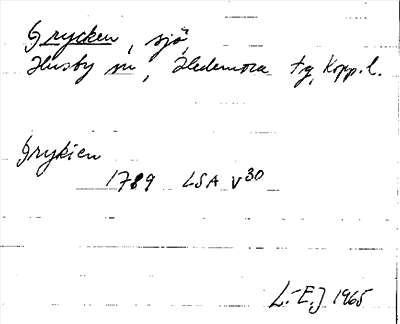 Grycken, sjö,
Husby sn, Hedemora tg, Kopp. l.
Grykien
1789 LSA V30
L.-E.J 1965